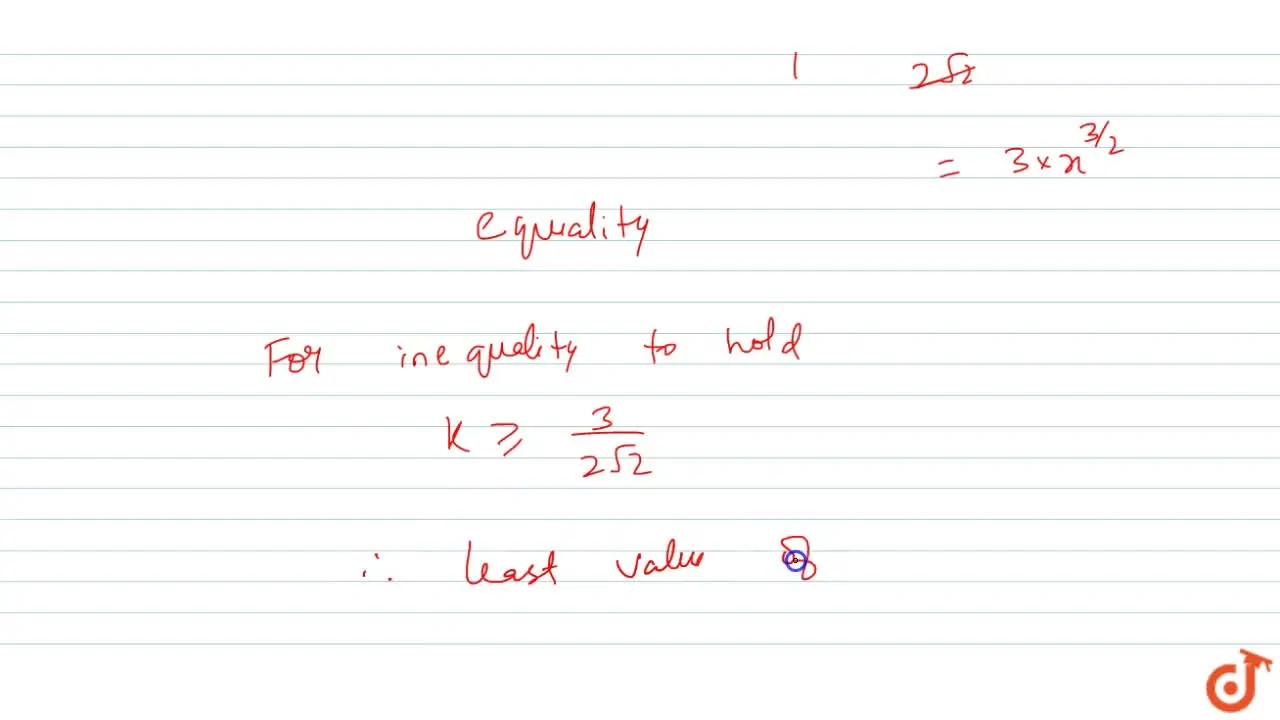 1 2√2
= 3 × x^3/2
equality
For inequality to hold
K ≥ 3/2√2
∴ least value of